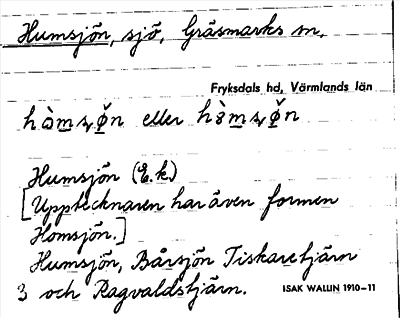 Humsjön, sjö, Gräsmarks sn,
Fryksdals hd, Värmlands län
eller
Humsjön (E.k.)
[Upptecknaren har även formen
Homsjön.]
Humsjön, Bårsjön Tiskaretjärn
3 och Ragvaldstjärn. ISAK WALLIN 1910–11